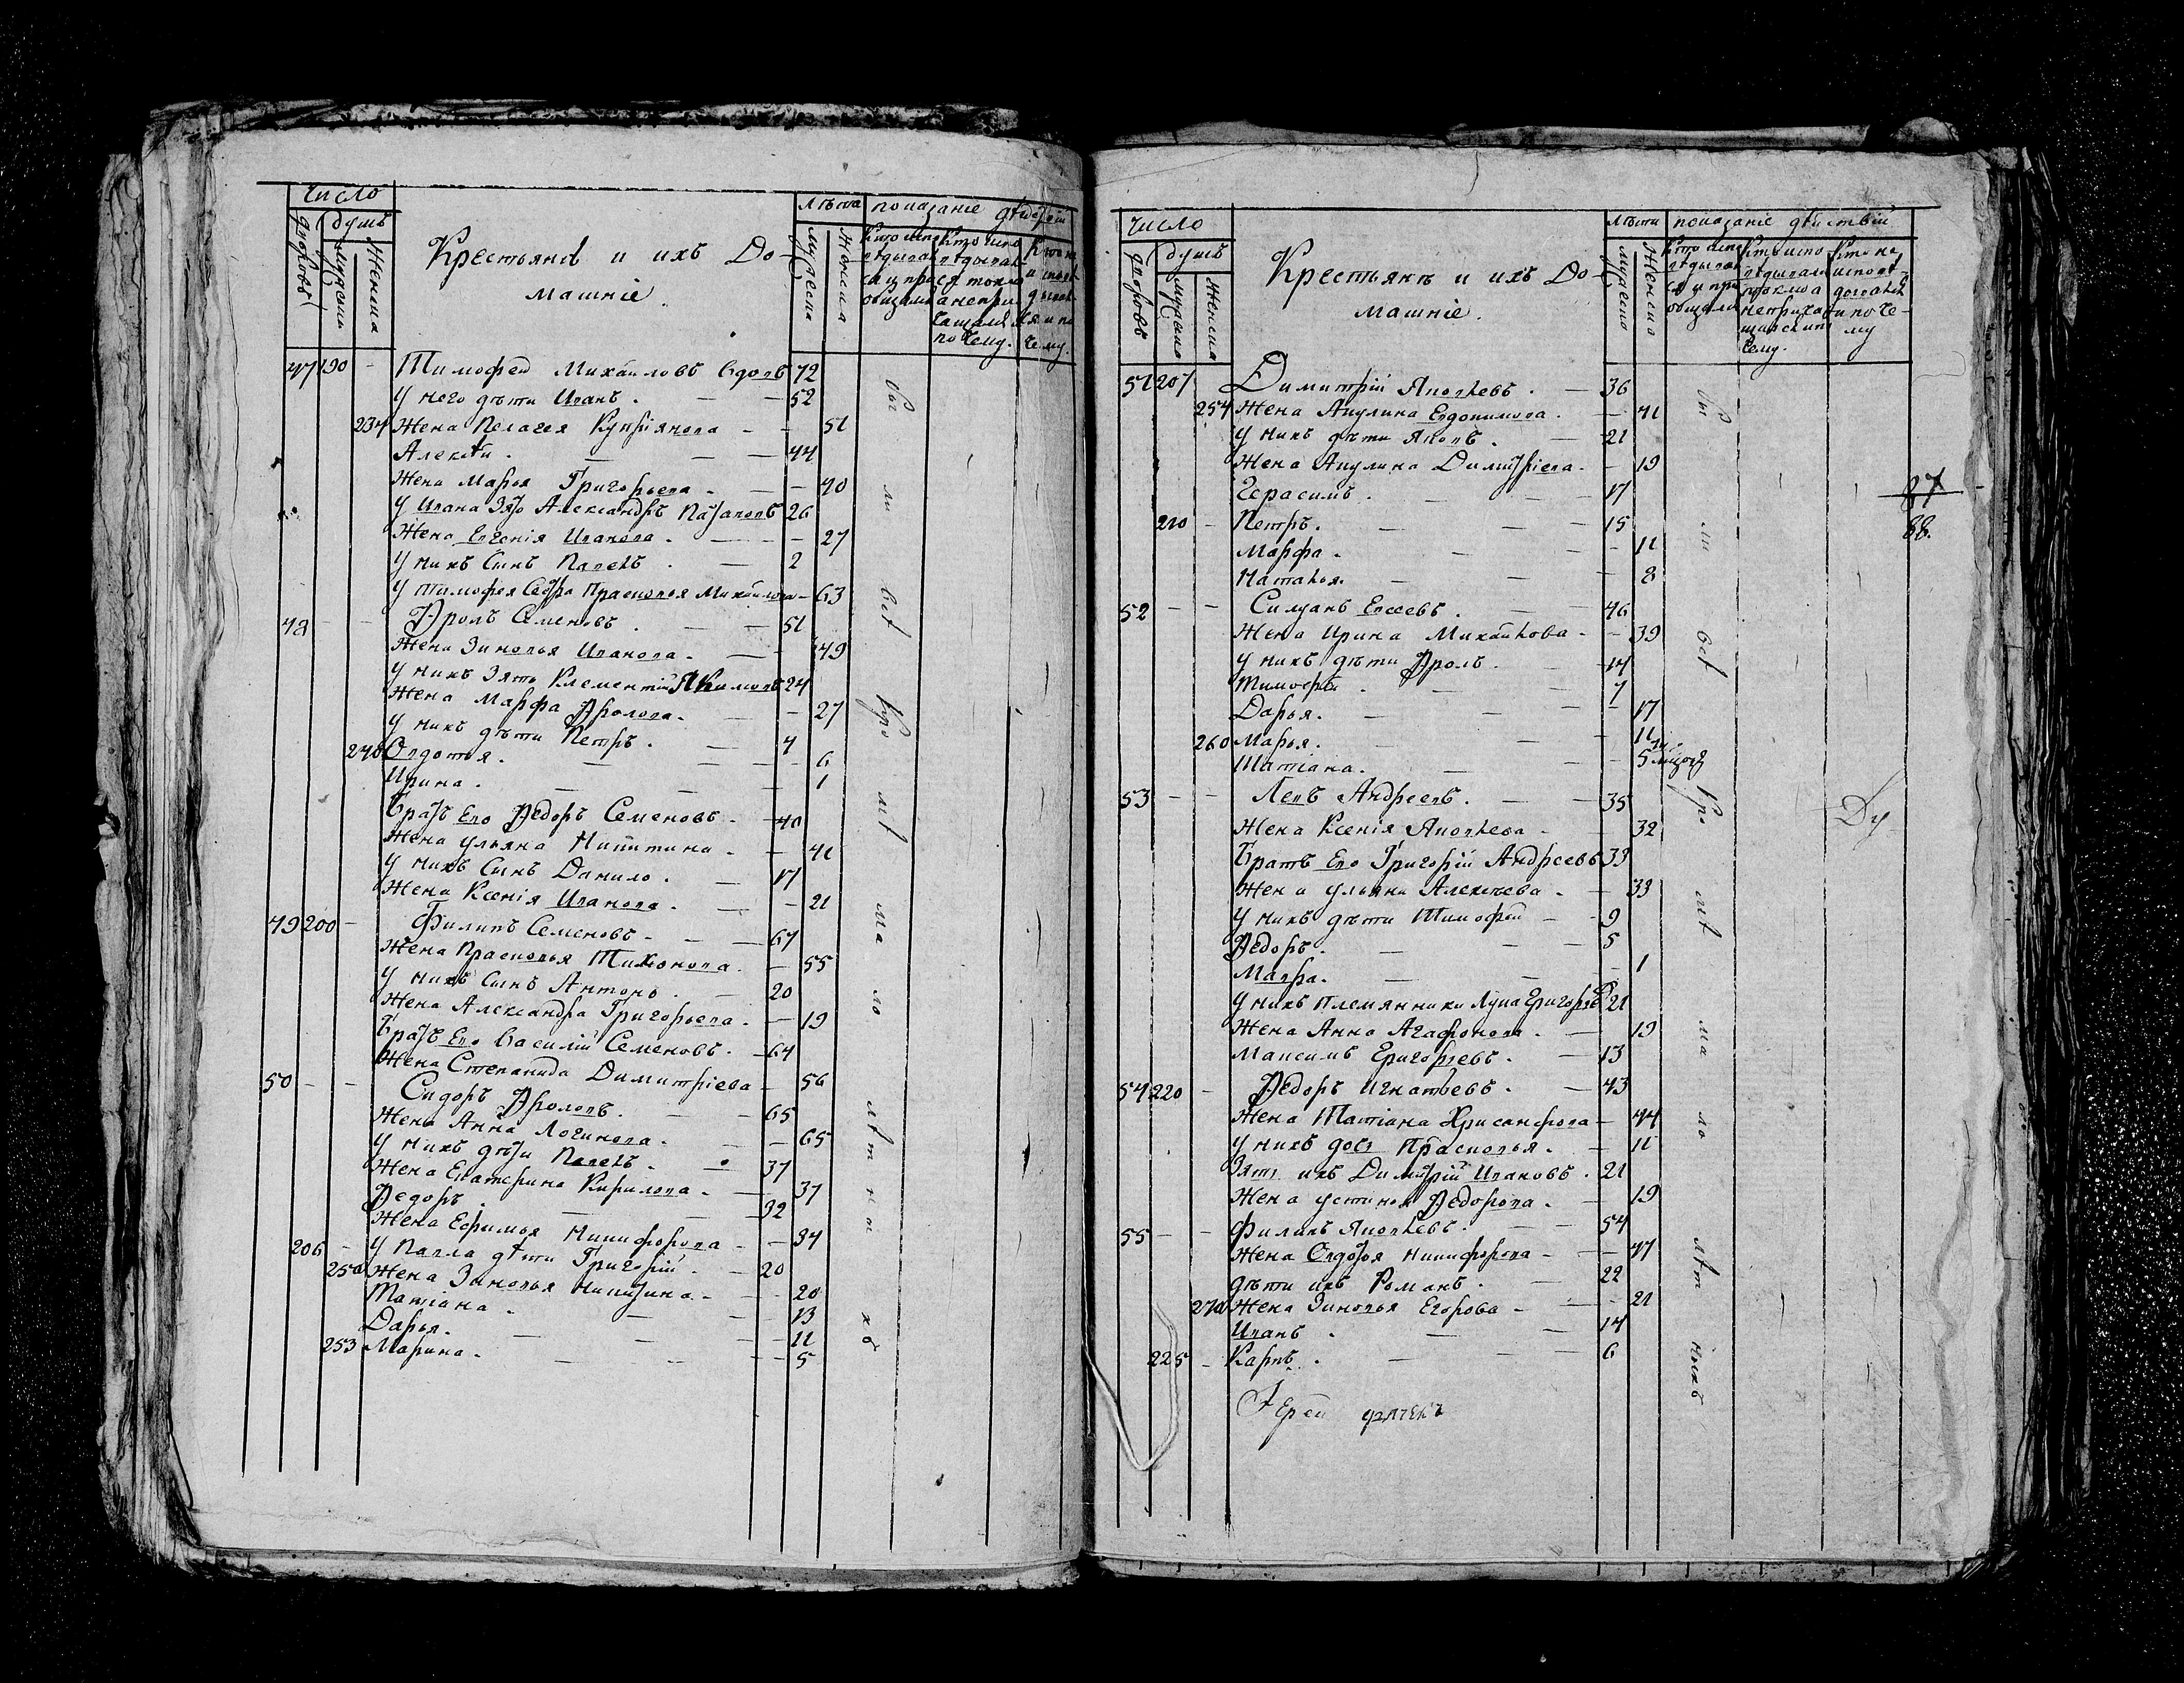 Число
дворовъ
душъ
мужеска
женска
Крестьянѣ и ихъ До-
машніе.
лѣта
мужеска
женска
показаніе дѣйствій
47 190 - Тимофей Михаиловъ вдовъ 72
У него дѣти Иванъ. 52
234 Жена Пелагея Купріянова - 51
Алексѣй. 44
Жена Марья Григорьева. - 40
У Ивана Зять Александръ 26
Жена Евгенія Иванова. - 27
У нихъ Сынъ Павелъ. 2
У Тимофея Сестра Прасковья Михаилова - 63
48 - - Фролъ Семеновъ. 51
Жена Зиновья Иванова. - 49
У нихъ Зять Климентій Якимовъ 24
Жена Марфа Фролова. - 27
У нихъ дѣти Петръ. 4
240 Овдотья. - 6
Ирина. - 1
Братъ Ево Федоръ Семеновъ. 40
Жена Ульяна Никитина. - 41
У нихъ Сынъ Данило. 17
Жена Ксенія Иванова. - 21
49 200 - Филипъ Семеновъ. 67
Жена Прасковья Тихонова. - 55
У нихъ Сынъ Антонъ. 20
Жена Александра Григорьева. - 19
Братъ Ево Василій Семеновъ. 64
Жена Степанида Димитріева - 56
50 - - Сидоръ Фроловъ. 65
Жена Анна Логинова. - 65
У нихъ дѣти Павелъ. 37
Жена Екатерина Кирилова. - 37
Федоръ. 32
Жена Ефимья Никифорова - 34
206 - У Павла дѣти Григорій. 20
250 Жена Зиновья Никитина. - 20
Татіана. - 13
Дарья. - 11
253 Марина. - 5
бы ли всѣ кро мѣ ма ло лѣт н ихъ
Число
дворовъ
душъ
мужеска
женска
Крестьянѣ и ихъ До-
машніе.
лѣта
мужеска
женска
показаніе дѣйствій
51 207 Димитрій Яковлевъ. 36
254 Жена Акулина Евдокимова. - 41
У нихъ дѣти Яковъ. 21
Жена Акулина Димитріева. - 19
Герасимъ. 17
210 - Петръ. 15
Марфа. - 11
Наталья. - 8
87
88.
52 - - Силуанъ Евсеевъ. 46
Жена Ирина Михайлова - 39
У нихъ дѣти Фролъ. 14
Тимофѣй. 7
Дарья. - 17
260 Марья. - 11
Татіана. - 5
53 - - Левъ Андреевъ. 35
Жена Ксенія Яковлева - 32
Братъ Ево Григорій Андреевъ 33
Жена Ульяна Алексѣева. - 33
У нихъ дѣти Тимофей - 9
Федоръ. 5
Мавра. - 1
У нихъ Племянники Лука Григорьевъ 21
Жена Анна Агафонова. - 19
Максимъ Григорьевъ. 13
54 220 - Федоръ Игнатьевъ. 43
Жена Татіана Хрисанфова - 44
У нихъ дочь Прасковья. - 11
Зять ихъ Димитрій Ивановъ. 21
Жена Устинья Федорова. - 19
55 - - Филипъ Яковлевъ. 54
Жена Овдотья Никифорова - 47
дѣти ихъ Романъ. 22
270 Жена Зиновья Егорова - 21
Иванъ. 14
225 - Карпъ. 6
бы ли всѣ кро мѣ ма ло лѣт нихъ
Ду
Іерей